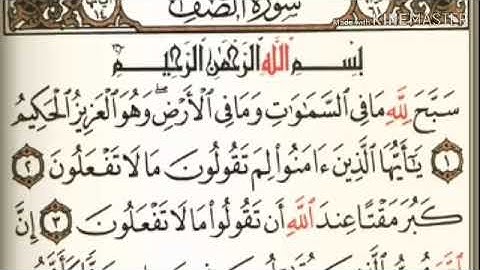 سُورَةُ الصَّفِّ
Made with KINEMASTER
بِسْمِ اللَّهِ الرَّحْمَٰنِ الرَّحِيمِ
سَبَّحَ لِلَّهِ مَا فِي السَّمَاوَاتِ وَمَا فِي الْأَرْضِ ۖ وَهُوَ الْعَزِيزُ الْحَكِيمُ
﴿١﴾ يَا أَيُّهَا الَّذِينَ ءَامَنُوا لِمَ تَقُولُونَ مَا لَا تَفْعَلُونَ ﴿٢﴾
كَبُرَ مَقْتًا عِندَ اللَّهِ أَن تَقُولُوا مَا لَا تَفْعَلُونَ ﴿٣﴾ إِنَّ